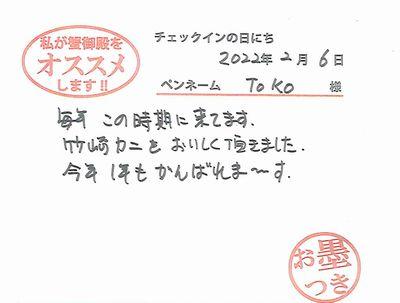 私が蟹御殿を
オススメ
します!!
チェックインの日にち
2022年2月6日
ペンネーム ToKo 様
毎年 この時期に来てます.
竹崎カニを おいしく頂きました.
今年1年も かんばれま〜す.
お墨
つき